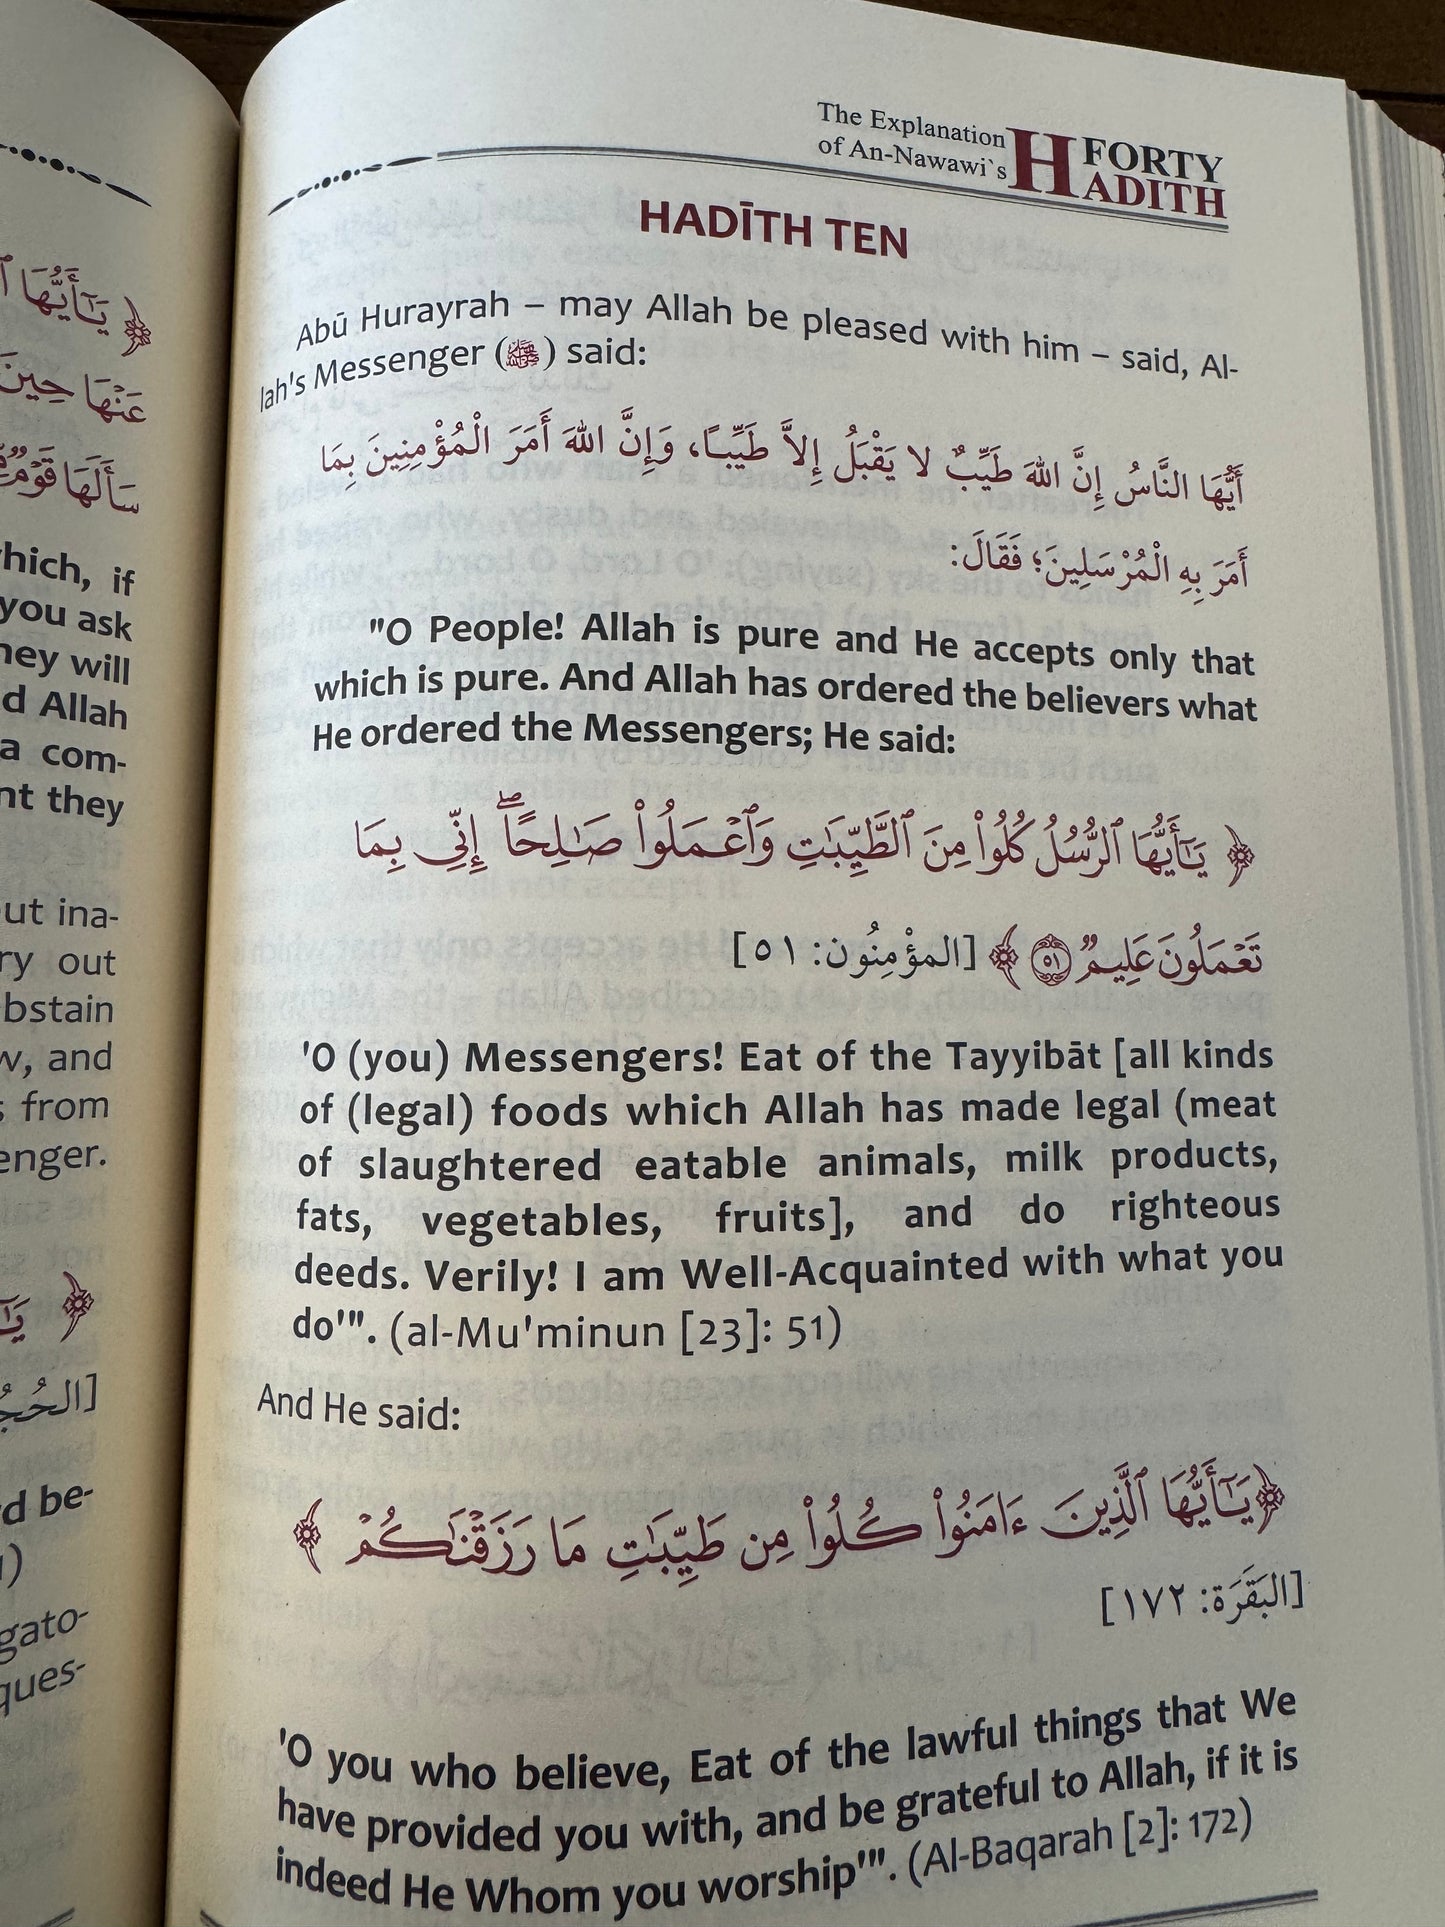 ﴿ يَـٰٓأَيُّهَا
عَنْهَا حِينَ
سَأَلَهَا قَوْمٌ
which, if
you ask
they will
d Allah
a com-
nt they
out ina-
ry out
bstain
w, and
s from
enger.
﴿
d be-
gato-
ques-
The Explanation
of An-Nawawi`s
FORTY
HADITH
HADĪTH TEN
Abū Hurayrah – may Allah be pleased with him – said, Al-
lah's Messenger (ﷺ) said:
أَيُّهَا النَّاسُ إِنَّ اللهَ طَيِّبٌ لا يَقْبَلُ إِلاَّ طَيِّبًا، وَإِنَّ اللهَ أَمَرَ الْمُؤْمِنِينَ بِمَا
أَمَرَ بِهِ الْمُرْسَلِينَ؛ فَقَالَ:
"O People! Allah is pure and He accepts only that
which is pure. And Allah has ordered the believers what
He ordered the Messengers; He said:
﴿ يَـٰٓأَيُّهَا ٱلرُّسُلُ كُلُوا۟ مِنَ ٱلطَّيِّبَـٰتِ وَٱعْمَلُوا۟ صَـٰلِحًا ۖ إِنِّى بِمَا
تَعْمَلُونَ عَلِيمٌ ٥١ ﴾ [المؤْمِنُون: ٥١]
'O (you) Messengers! Eat of the Tayyibāt [all kinds
of (legal) foods which Allah has made legal (meat
of slaughtered eatable animals, milk products,
fats, vegetables, fruits], and do righteous
deeds. Verily! I am Well-Acquainted with what you
do'". (al-Mu'minun [23]: 51)
And He said:
﴿ يَـٰٓأَيُّهَا ٱلَّذِينَ ءَامَنُوا۟ كُلُوا۟ مِن طَيِّبَـٰتِ مَا رَزَقْنَـٰكُمْ ﴾
[البَقَرَة: ١٧٢]
'O you who believe, Eat of the lawful things that We
have provided you with, and be grateful to Allah, if it is
indeed He Whom you worship'". (Al-Baqarah [2]: 172)